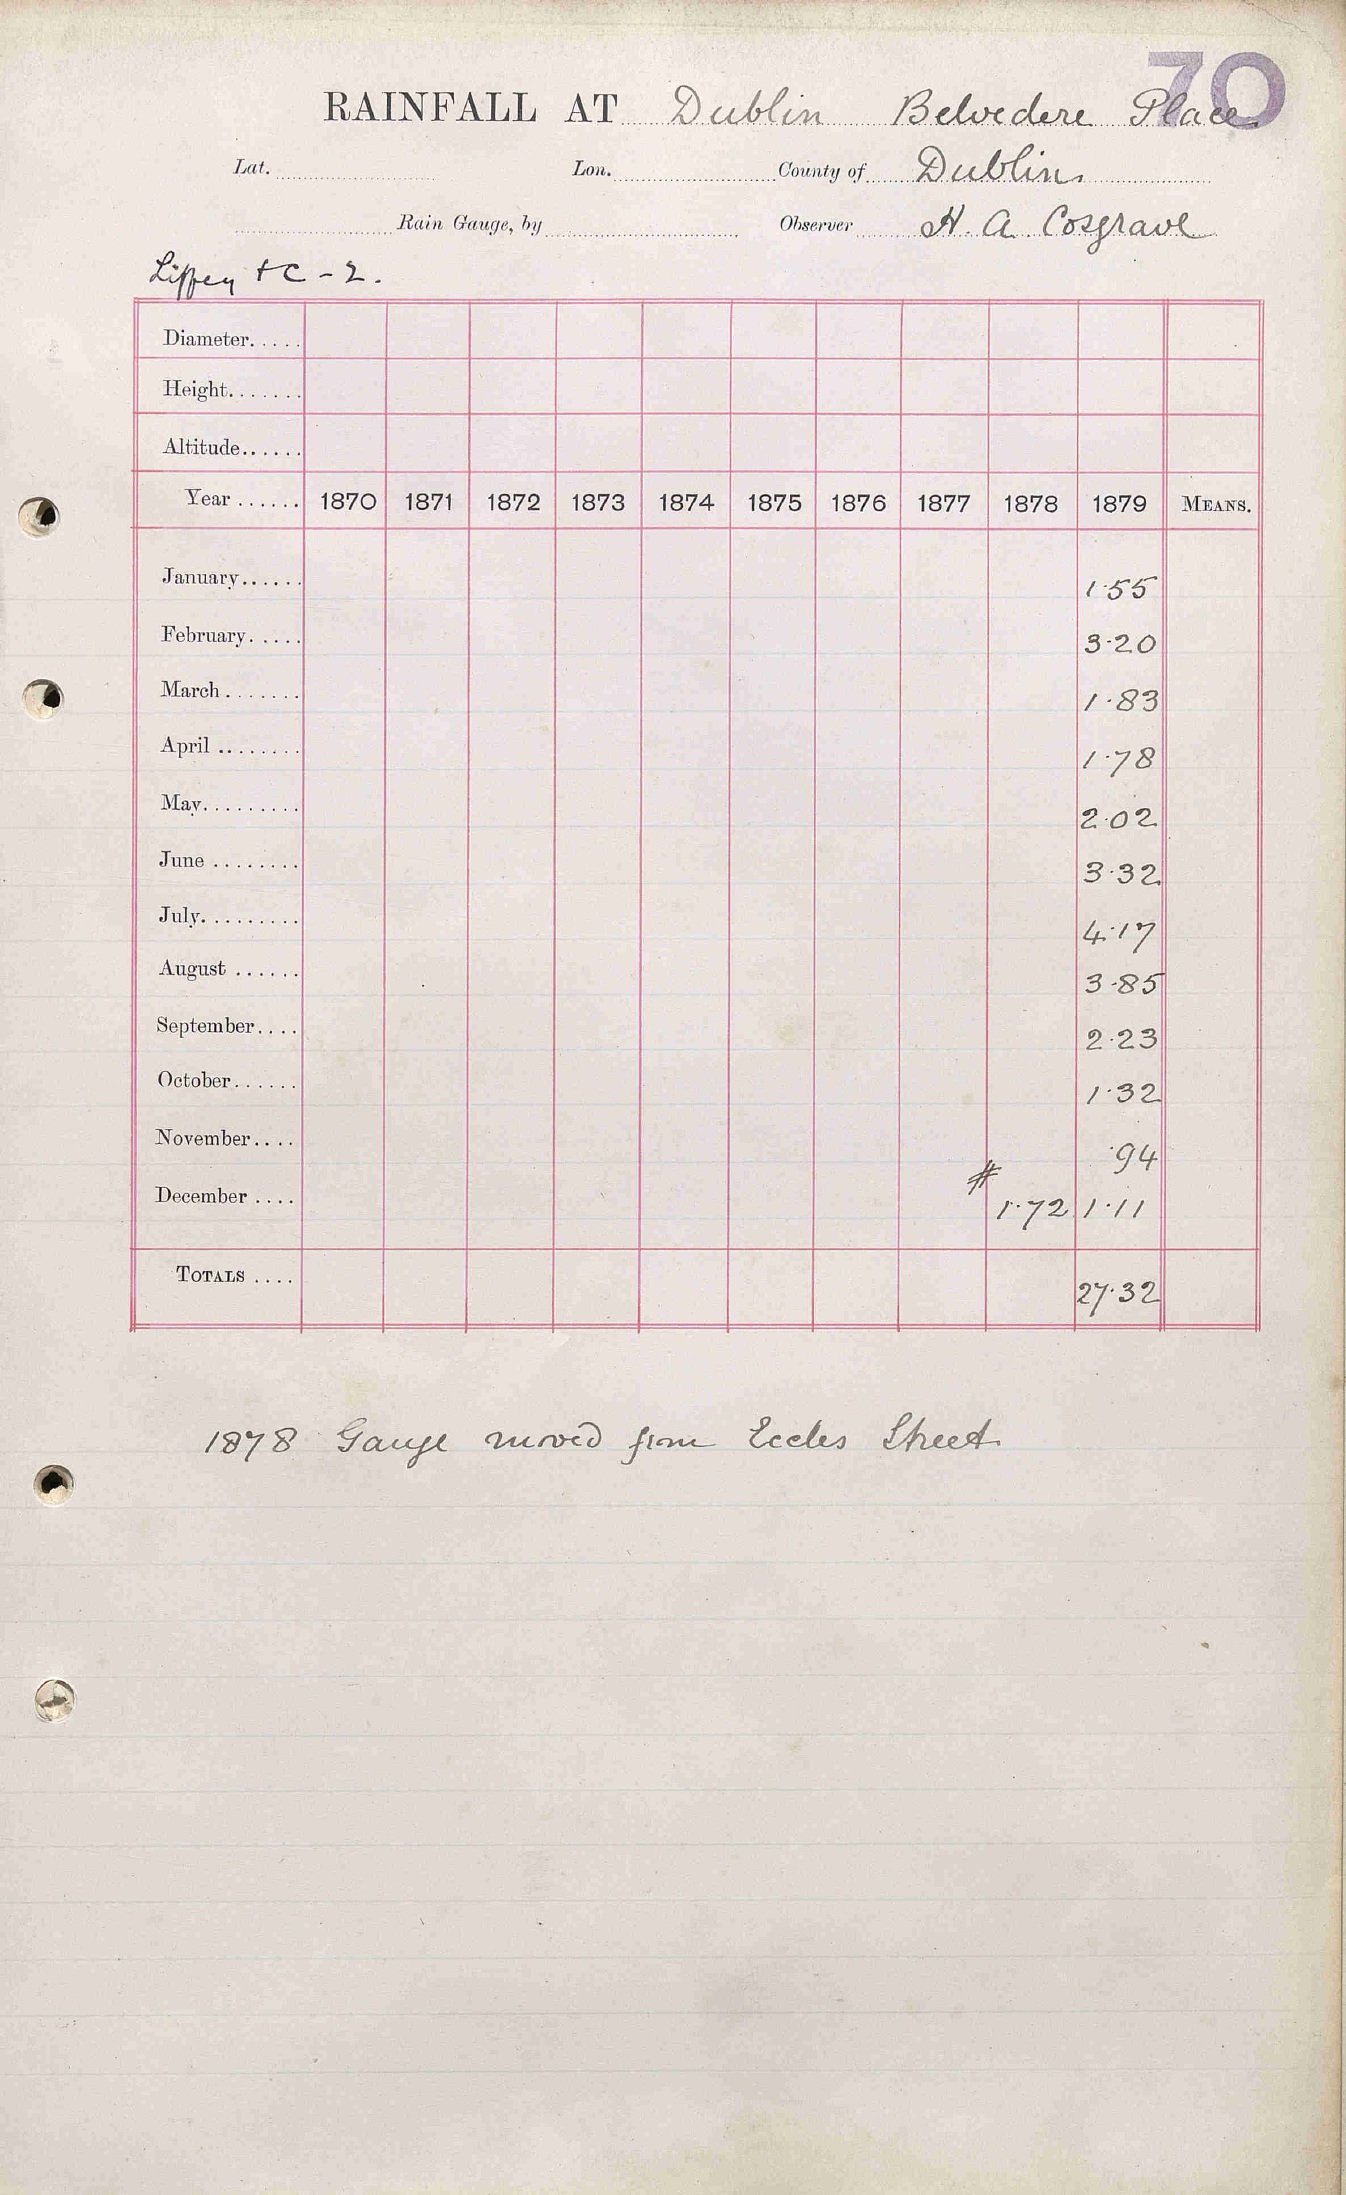 70
RAINFALL AT Dublin Belvedere Place
Lat. Lon. County of Dublin.
Rain Gauge, by Observer H. A. Cosgrave
Liffey + C - 2.
Diameter.....
Height.......
Altitude......
Year ...... 1870 1871 1872 1873 1874 1875 1876 1877 1878 1879 MEANS.
January...... 1.55
February..... 3.20
March ....... 1.83
April ........ 1.78
May......... 2.02
June ........ 3.32
July......... 4.17
August ...... 3.85
September.... 2.23
October...... 1.32
November.... .94
December .... # 1.72 1.11
TOTALS .... 27.32
1878 Gauge moved from Eccles Street